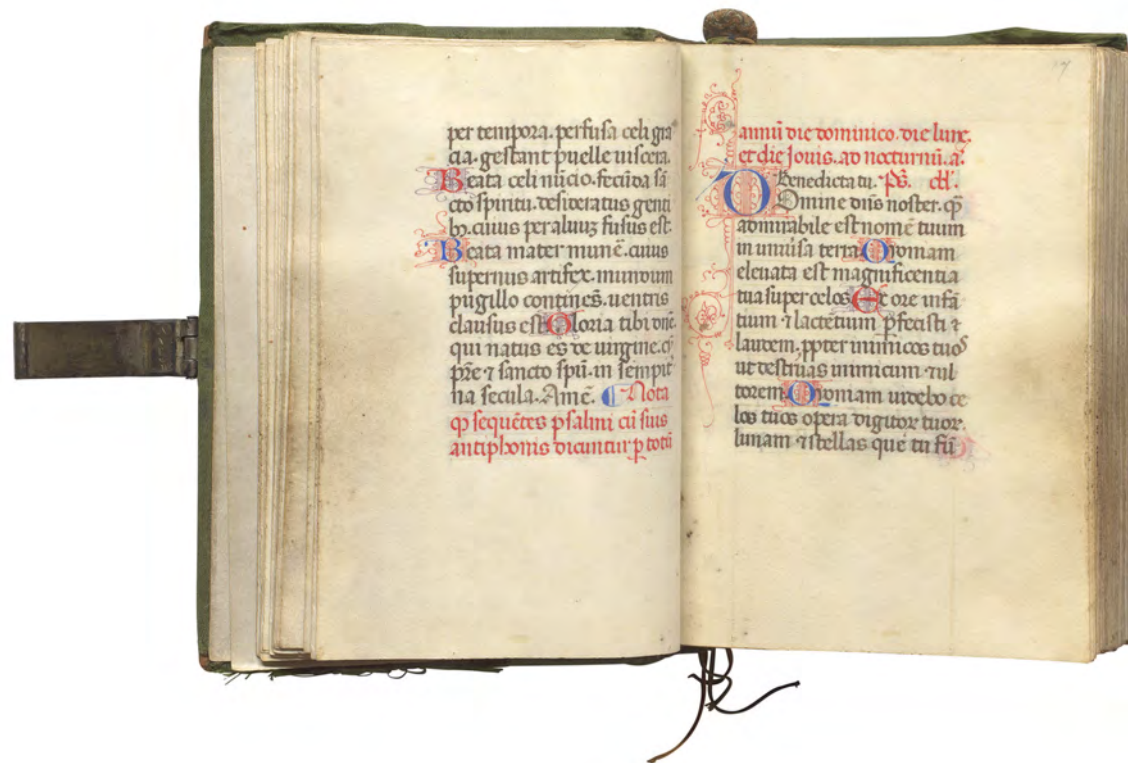 per tempora. perfusa celi gra
cia. gestant puelle uiscera.
Beata celi nūcio. fecūda sā
cto spiritu. desideratus genti
bꝫ. cuius per aluuꝫ fusus est.
Beata mater munē̄. cuius
supernus artifex. mundum
pugillo continēs. uentris
clausus est Gloria tibi dn̄e.
qui natus es de uirgine. cū
pr̄e ⁊ sancto spū. in sempit̄
na secula. Amē. ¶ Nota
ꝙ sequētes psalmi cū suis
antiphonis dicuntur ꝑ totū
17
annū die dominico. die lune.
et die Jouis. ad nocturnū. a.
Benedicta tu. Ps.
Domine dn̄s noster. ꝙ̄
admirabile est nomē tuum
in uniūsa terra Quoniam
eleuata est magnificentia
tua super celos Ex ore infā
tium ⁊ lactētium ꝑfecisti ⁊
laudem. ꝓpter inimicos tuos
ut destruas inimicum ⁊ ul
torem Quoniam uidebo ce
los tuos opera digitoꝝ tuoꝝ.
lunam ⁊ stellas que tu fū